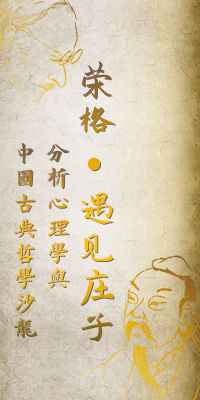 荣格•遇见庄子
分析心理學與
中國古典哲學沙龍